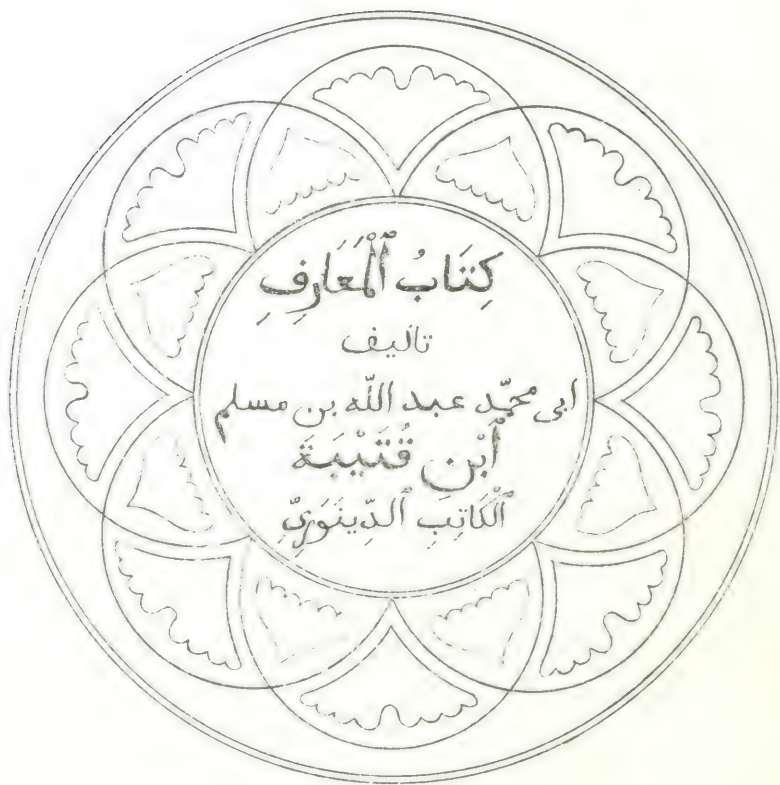 كِتَابُ ٱلْمَعَارِفِ
تاليف
ابى محمّد عبد اللّه بن مسلم
ٱبْنِ قُتَيْبَةَ
ٱلْكَاتِبِ ٱلدِّينَوَرِيِّ